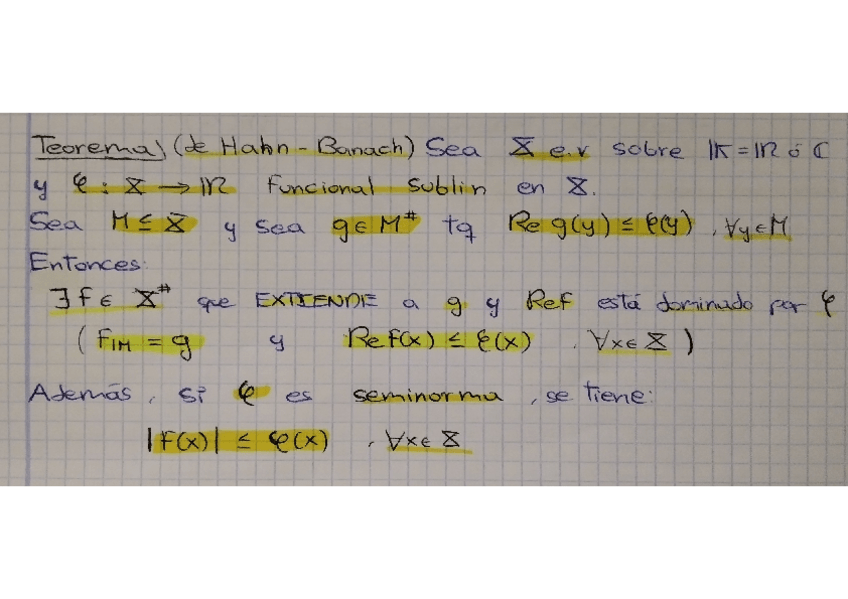 Teorema) (de Hahn-Banach) Sea X e.v sobre K = R ó C
y φ : X → R Funcional sublin en X.
Sea M ≤ X y sea g ∈ M# tq Re g(y) ≤ φ(y) , ∀y ∈ M
Entonces:
∃ f ∈ X# que EXTIENDE a g y Re f está dominado por φ
( f|M = g y Re f(x) ≤ φ(x) , ∀x ∈ X )
Además, si φ es seminorma, se tiene:
|f(x)| ≤ φ(x) , ∀x ∈ X